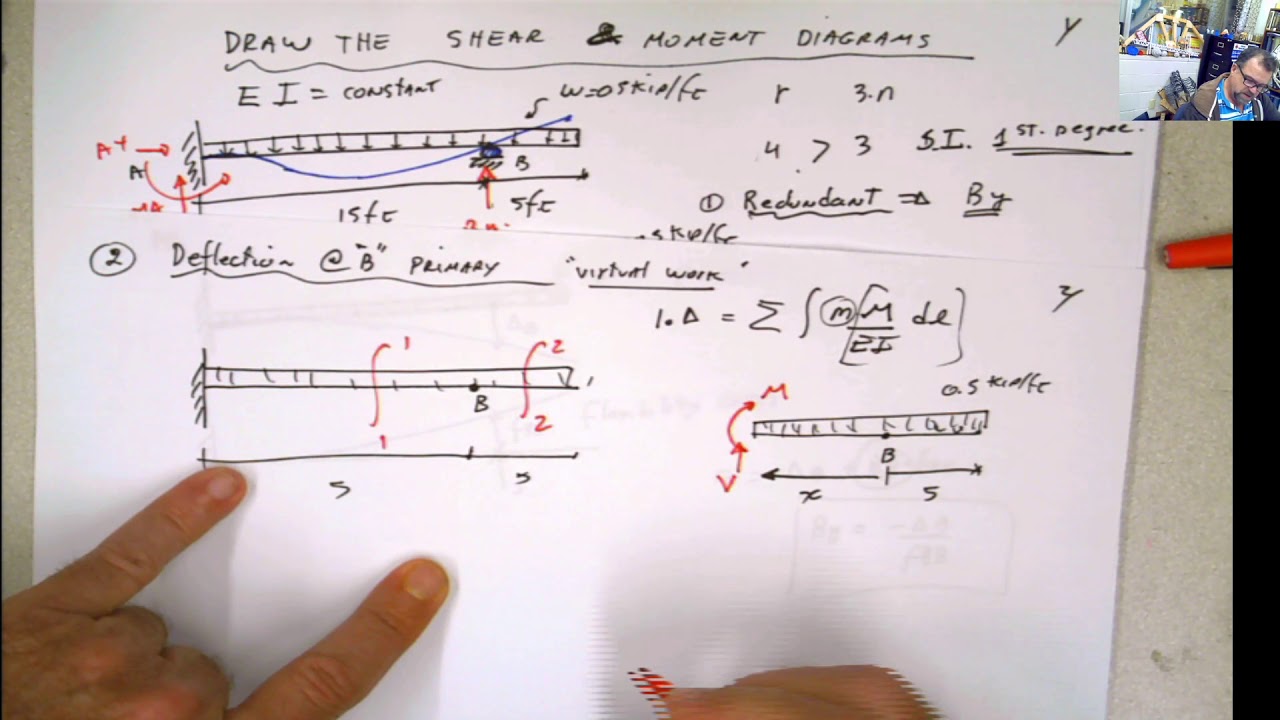 DRAW THE SHEAR & MOMENT DIAGRAMS
y
E I = CONSTANT
w=0.5kip/ft
r 3.n
4 > 3 S.I. 1ST. Degree.
B
15ft
5ft
① Redundant ⇒ By
kip/ft
② Deflection @ "B" PRIMARY "virtual work"
1.Δ = Σ ∫ m M/EI dl
y
1
2
B
1
2
5
5
M
0.5 kip/ft
V
B
x
5